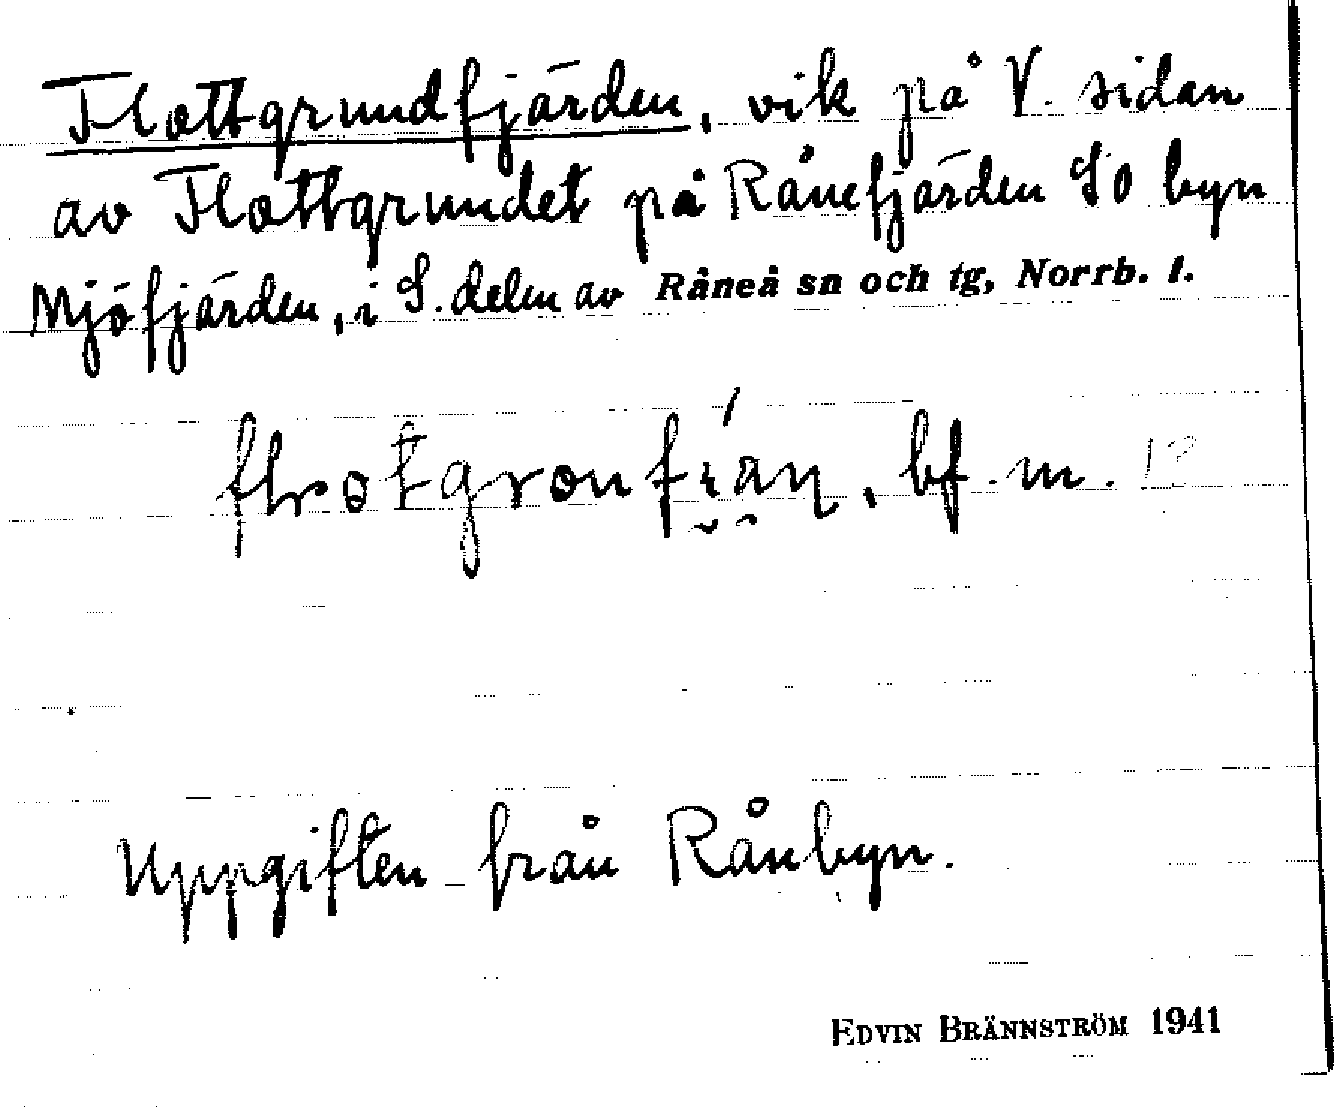 Flottgrundfjärden, vik på V. sidan
av Flottgrundet på Rånefjärden SO byn
Mjöfjärden, i S. delen av Råneå sn och tg, Norrb. l.
bf. m. 1?
Uppgiften från Rånbyn.
EDVIN BRÄNNSTRÖM 1941